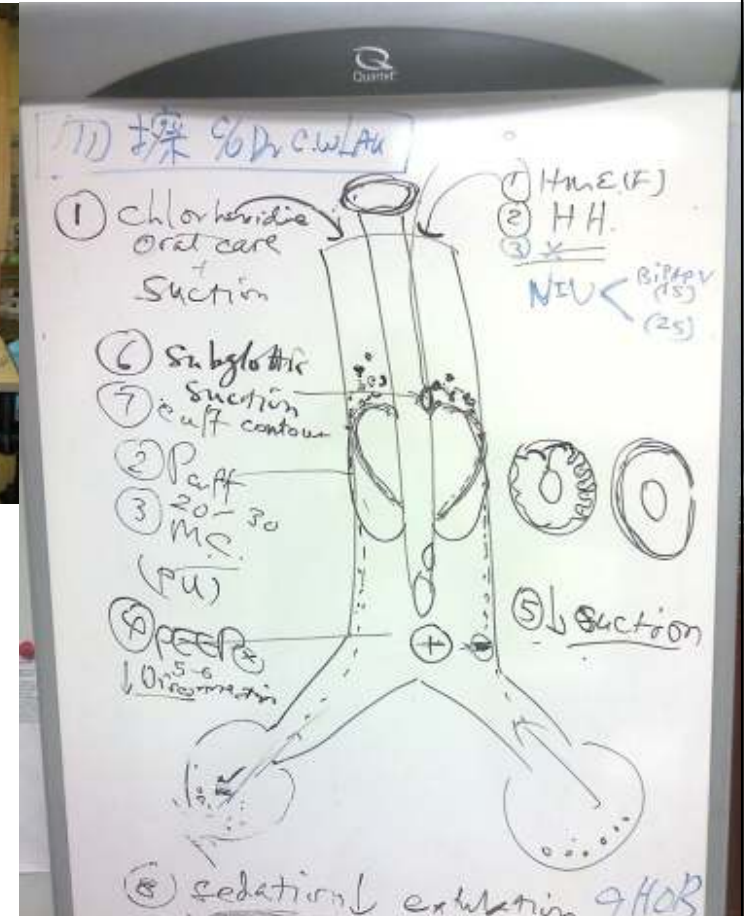 Quartet
c/o Dr C.W LAU
① Chlorhexidie
oral care
+
Suction
⑥ Subglottic
Suction
⑦ cuff contour
② P cuff
20-30
③ MC.
(PU)
④ PEEP
5-6
↓ Disconnection
① HME (F)
② HH.
③
NIV
BiPAP V
(1S)
(2S)
⑤ ↓ Suction
+
⑧ sedation ↓ extubation HOB